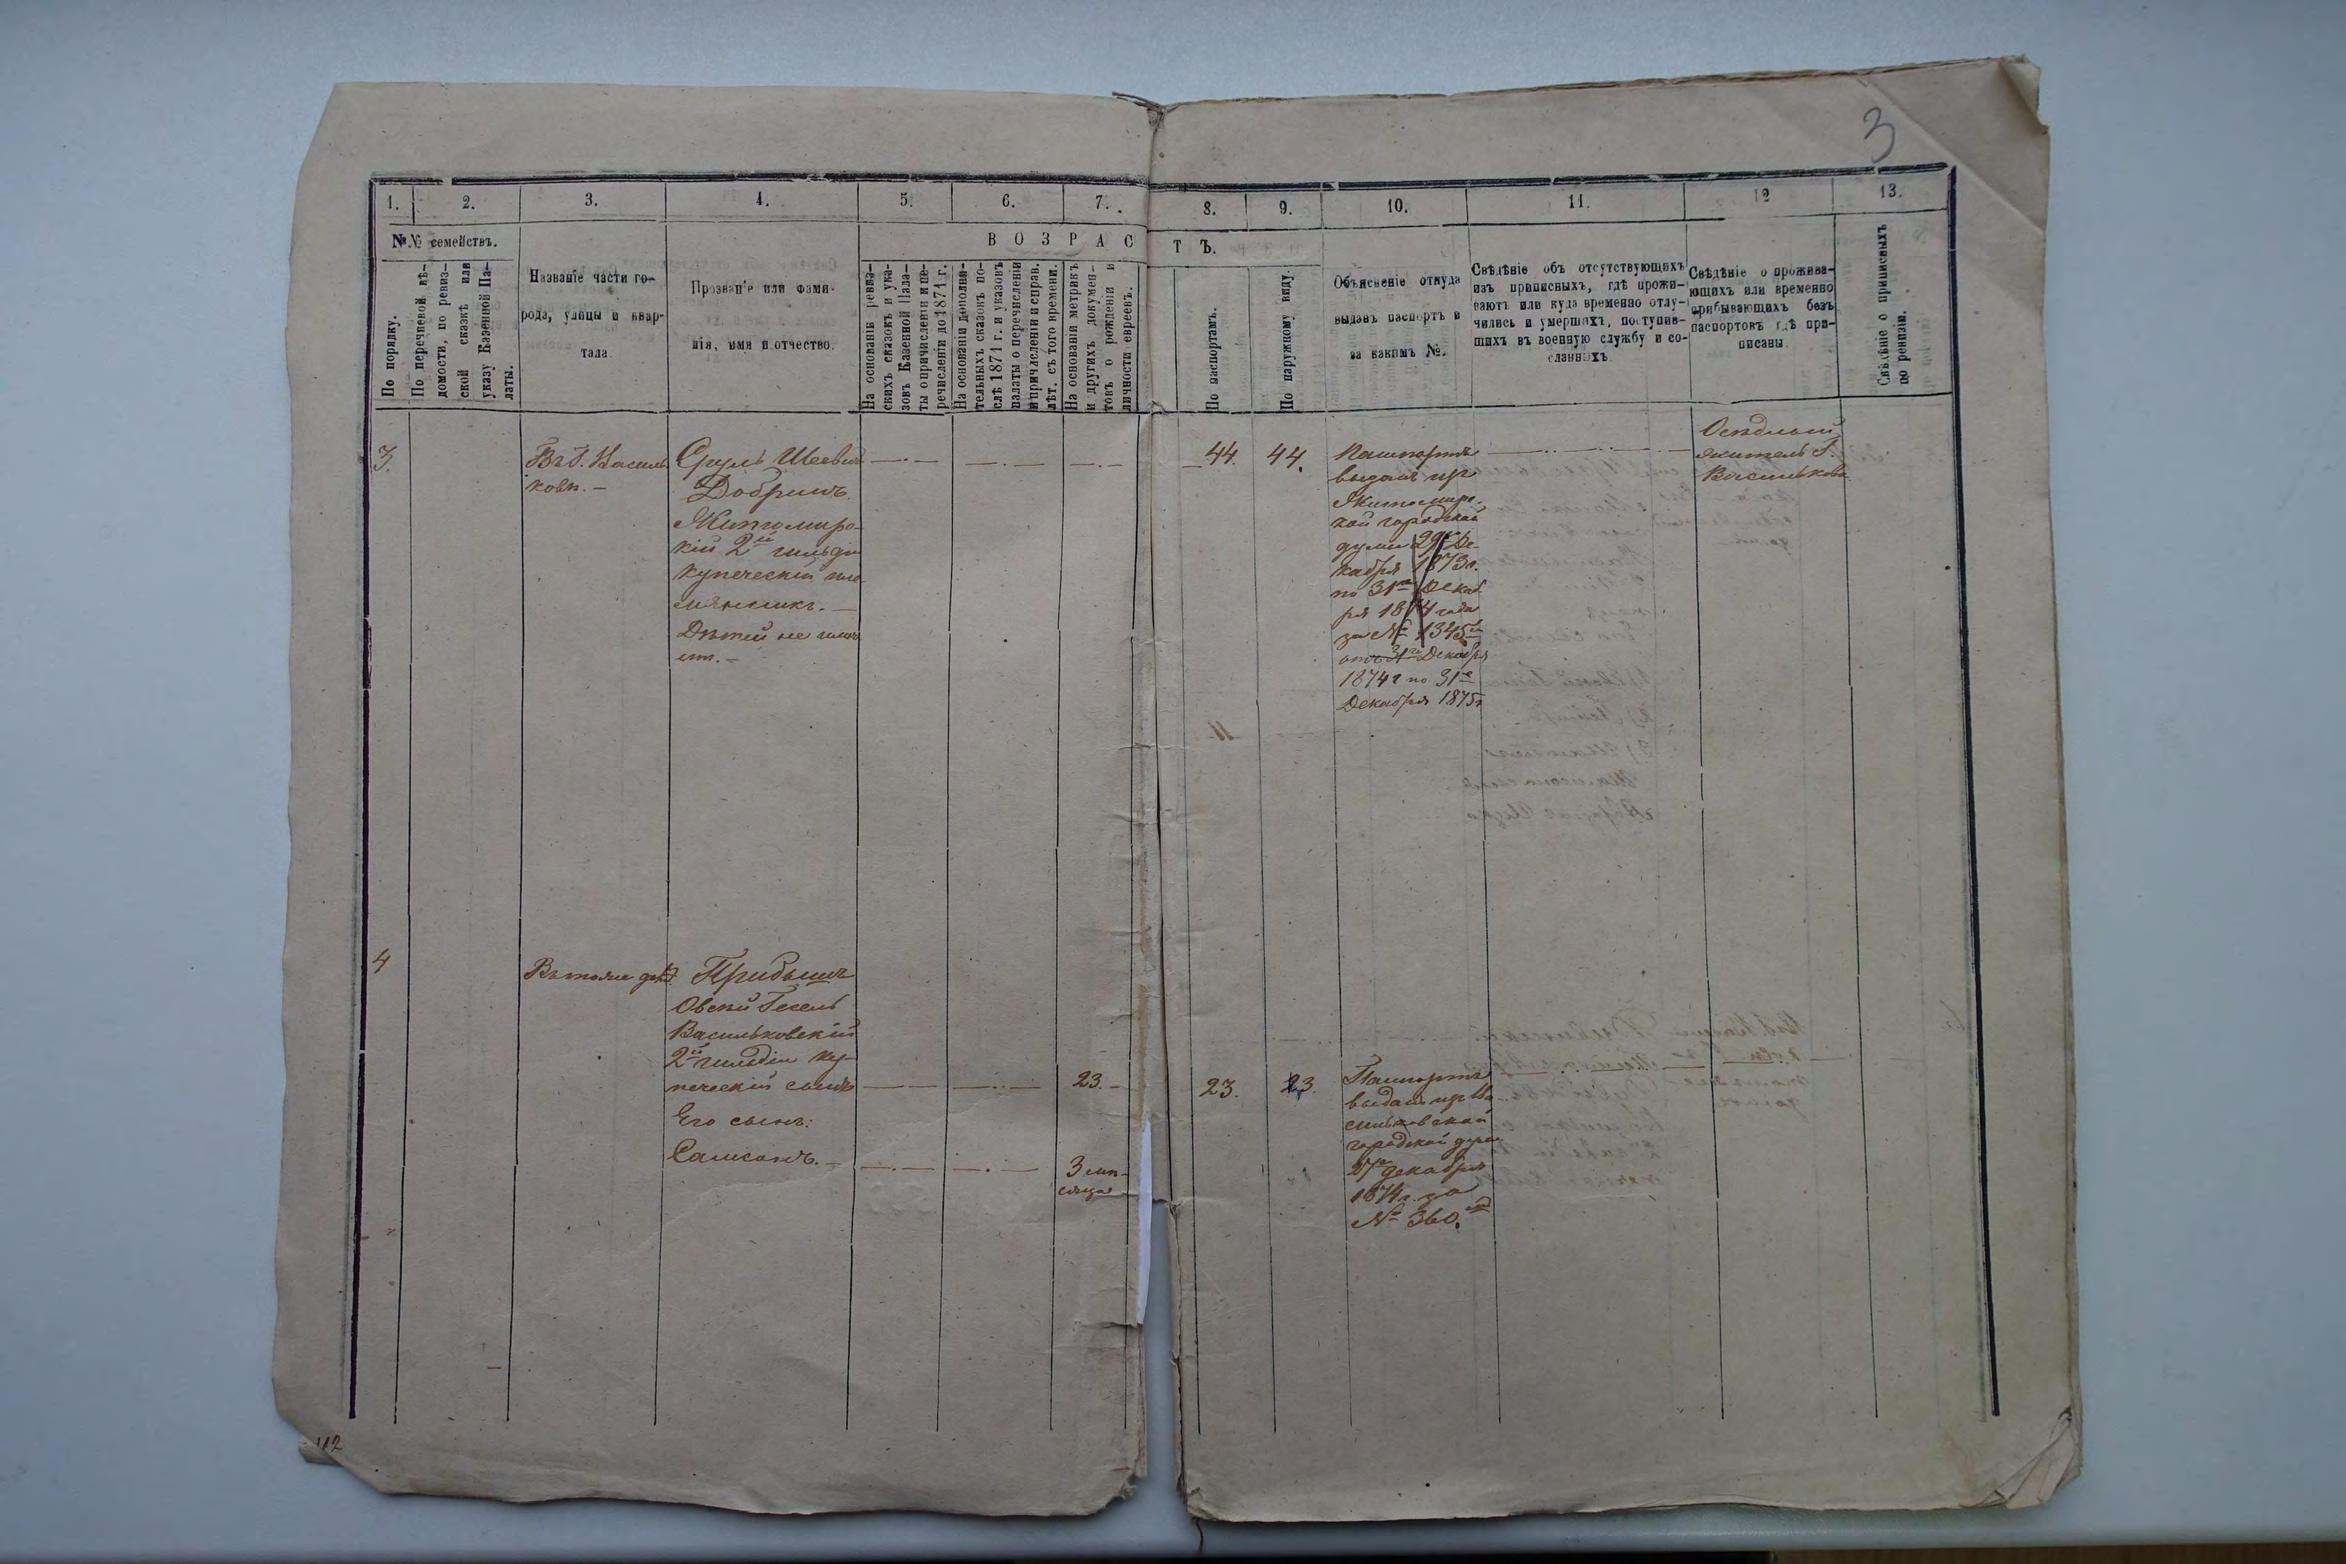 3
1.
2.
3.
4.
5.
6.
7.
8.
9.
10.
11.
12
13.
№№ семействъ.
По порядку.
По перечневой вѣ-
домости, по ревиз-
ской сказкѣ или
указу Казенной Па-
латы.
Названіе части го-
рода, улицы и квар-
тала.
Прозваніе или фами-
лія, имя и отчество.
ВОЗРАС
ТЪ.
На основаніи ревиз-
скихъ сказокъ и ука-
зовъ Казенной Пала-
ты о причисленіи и пе-
речисленіи до 1871 г.
На основаніи дополни-
тельныхъ сказокъ по-
слѣ 1871 г. и указовъ
палаты о перечисленіи
и причисленіи и справ.
лѣт. съ того времени.
На основаніи метрикъ
и другихъ докумен-
товъ о рожденіи и
личности евреевъ.
По паспортамъ.
По наружному виду.
Объясненіе откуда
выданъ паспортъ и
за какимъ №.
Свѣдѣніе объ отсутствующихъ
изъ приписныхъ, гдѣ прожи-
ваютъ или куда временно отлу-
чились и умершихъ, поступив-
шихъ въ военную службу и со-
сланныхъ
Свѣдѣніе о прожива-
ющихъ или временно
прибывающихъ безъ
паспортовъ гдѣ при-
писаны
Свѣдѣніе о приписныхъ
по ревизіи.
3.
Въ Г. Василь
ковѣ. —
Сруль Шеевъ
Добришъ
Житомирс-
кій 2й гильдіи
купеческій пле-
мянникъ. —
Дѣтей не имѣ
етъ. —
44.
44.
Пашпортъ
выданъ изъ
Житомирс-
кой городской
думы 29го Де-
кабря 1873 г.
по 31е Декаб
ря 1874 года
за № 1345м
отъ 31го Декабря
1874 г по 31е
Декабря 1875 г
Осѣдлый
житель Г.
Василькова
4
Въ томъ же
Прибышъ
Овсей Гесель
Васильковскій
2й гильдіи ку-
печескій сынъ
23.
23.
23.
Его сынъ:
Самсонъ. —
3 мѣ-
сяца
Пашпортъ
выданъ изъ Ва
сильковской
городской думы
27го декабря
1874 г. за
№ 360.м
112